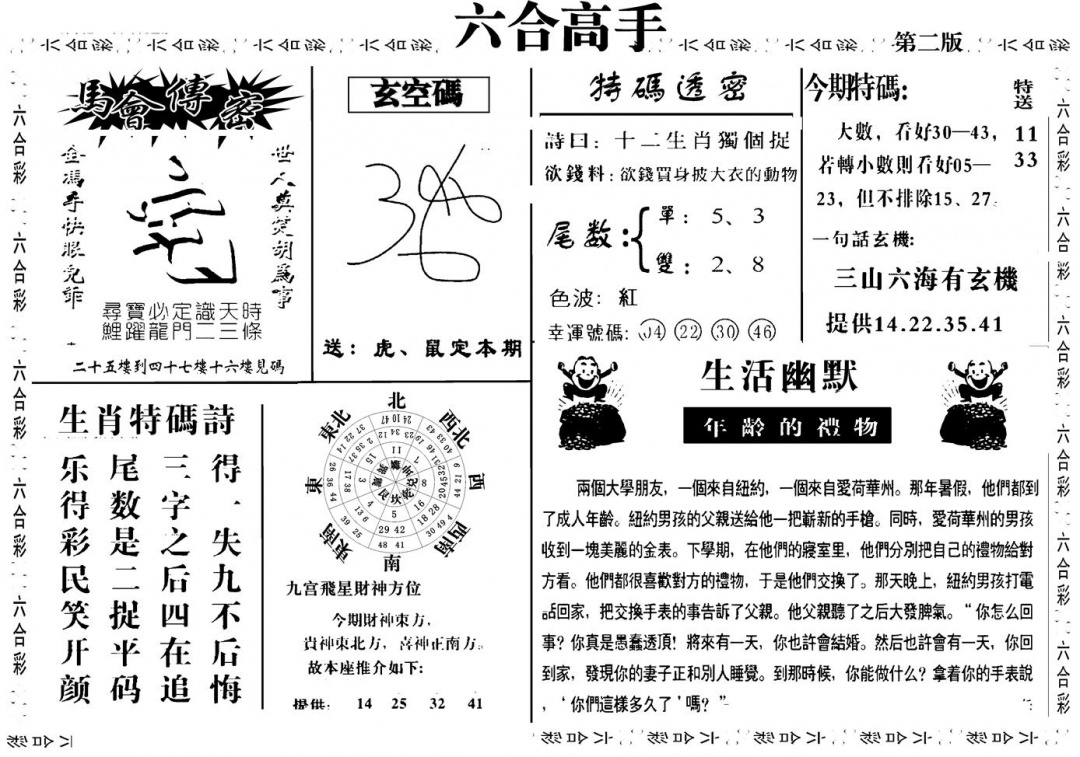 六合高手
第二版
馬會傳密
金馮手快眼兒乖
世人莫笑胡為事
尋寶必定識天時
鯉躍龍門二三條
二十五樓到四十七樓十六樓見碼
玄空碼
送：虎、鼠定本期
特碼透密
詩曰：十二生肖獨個捉
欲錢料：欲錢買身披大衣的動物
尾数：
單：5、3
雙：2、8
色波：紅
幸運號碼：04 22 30 46
今期特碼：
大數，看好30—43，
若轉小數則看好05—
23，但不排除15、27。
特送
11
33
一句話玄機：
三山六海有玄機
提供14.22.35.41
生肖特碼詩
得一失九不后悔
三字之后四在追
尾数是二捉平码
乐得彩民笑开颜
北
東北
西北
東
西
東南
西南
南
九宫飛星財神方位
今期財神東方，
貴神東北方，喜神正南方。
故本座推介如下：
提供：14 25 32 41
生活幽默
年齡的禮物
兩個大學朋友，一個來自紐約，一個來自愛荷華州。那年暑假，他們都到
了成人年齡。紐約男孩的父親送給他一把嶄新的手槍。同時，愛荷華州的男孩
收到一塊美麗的金表。下學期，在他們的寢室里，他們分別把自己的禮物給對
方看。他們都很喜歡對方的禮物，于是他們交換了。那天晚上，紐約男孩打電
話回家，把交換手表的事告訴了父親。他父親聽了之后大發脾氣。“你怎么回
事？你真是愚蠢透頂！將來有一天，你也許會結婚。然后也許會有一天，你回
到家，發現你的妻子正和別人睡覺。到那時候，你能做什么？拿着你的手表說
，‘你們這樣多久了’嗎？”